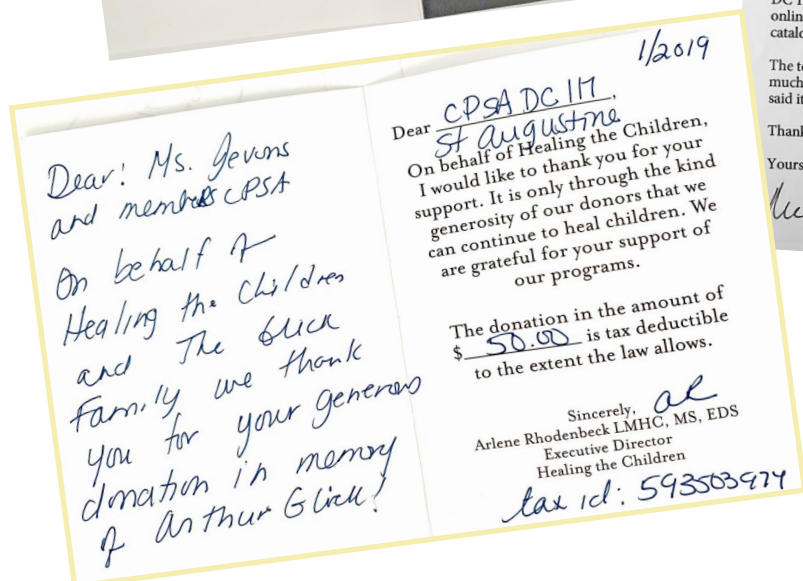 Dear: Ms. Jevons
and members CPSA
On behalf of
Healing the Children
and The Glick
Family we thank
you for your generous
donation in memory
of Arthur Glick!
1/2019
Dear CPSA DC 117,
St Augustine
On behalf of Healing the Children,
I would like to thank you for your
support. It is only through the kind
generosity of our donors that we
can continue to heal children. We
are grateful for your support of
our programs.
The donation in the amount of
$ 50.00 is tax deductible
to the extent the law allows.
Sincerely, ar
Arlene Rhodenbeck LMHC, MS, EDS
Executive Director
Healing the Children
tax id: 593503974
onlin
catalo
The t
much
said it
Thank
Yours